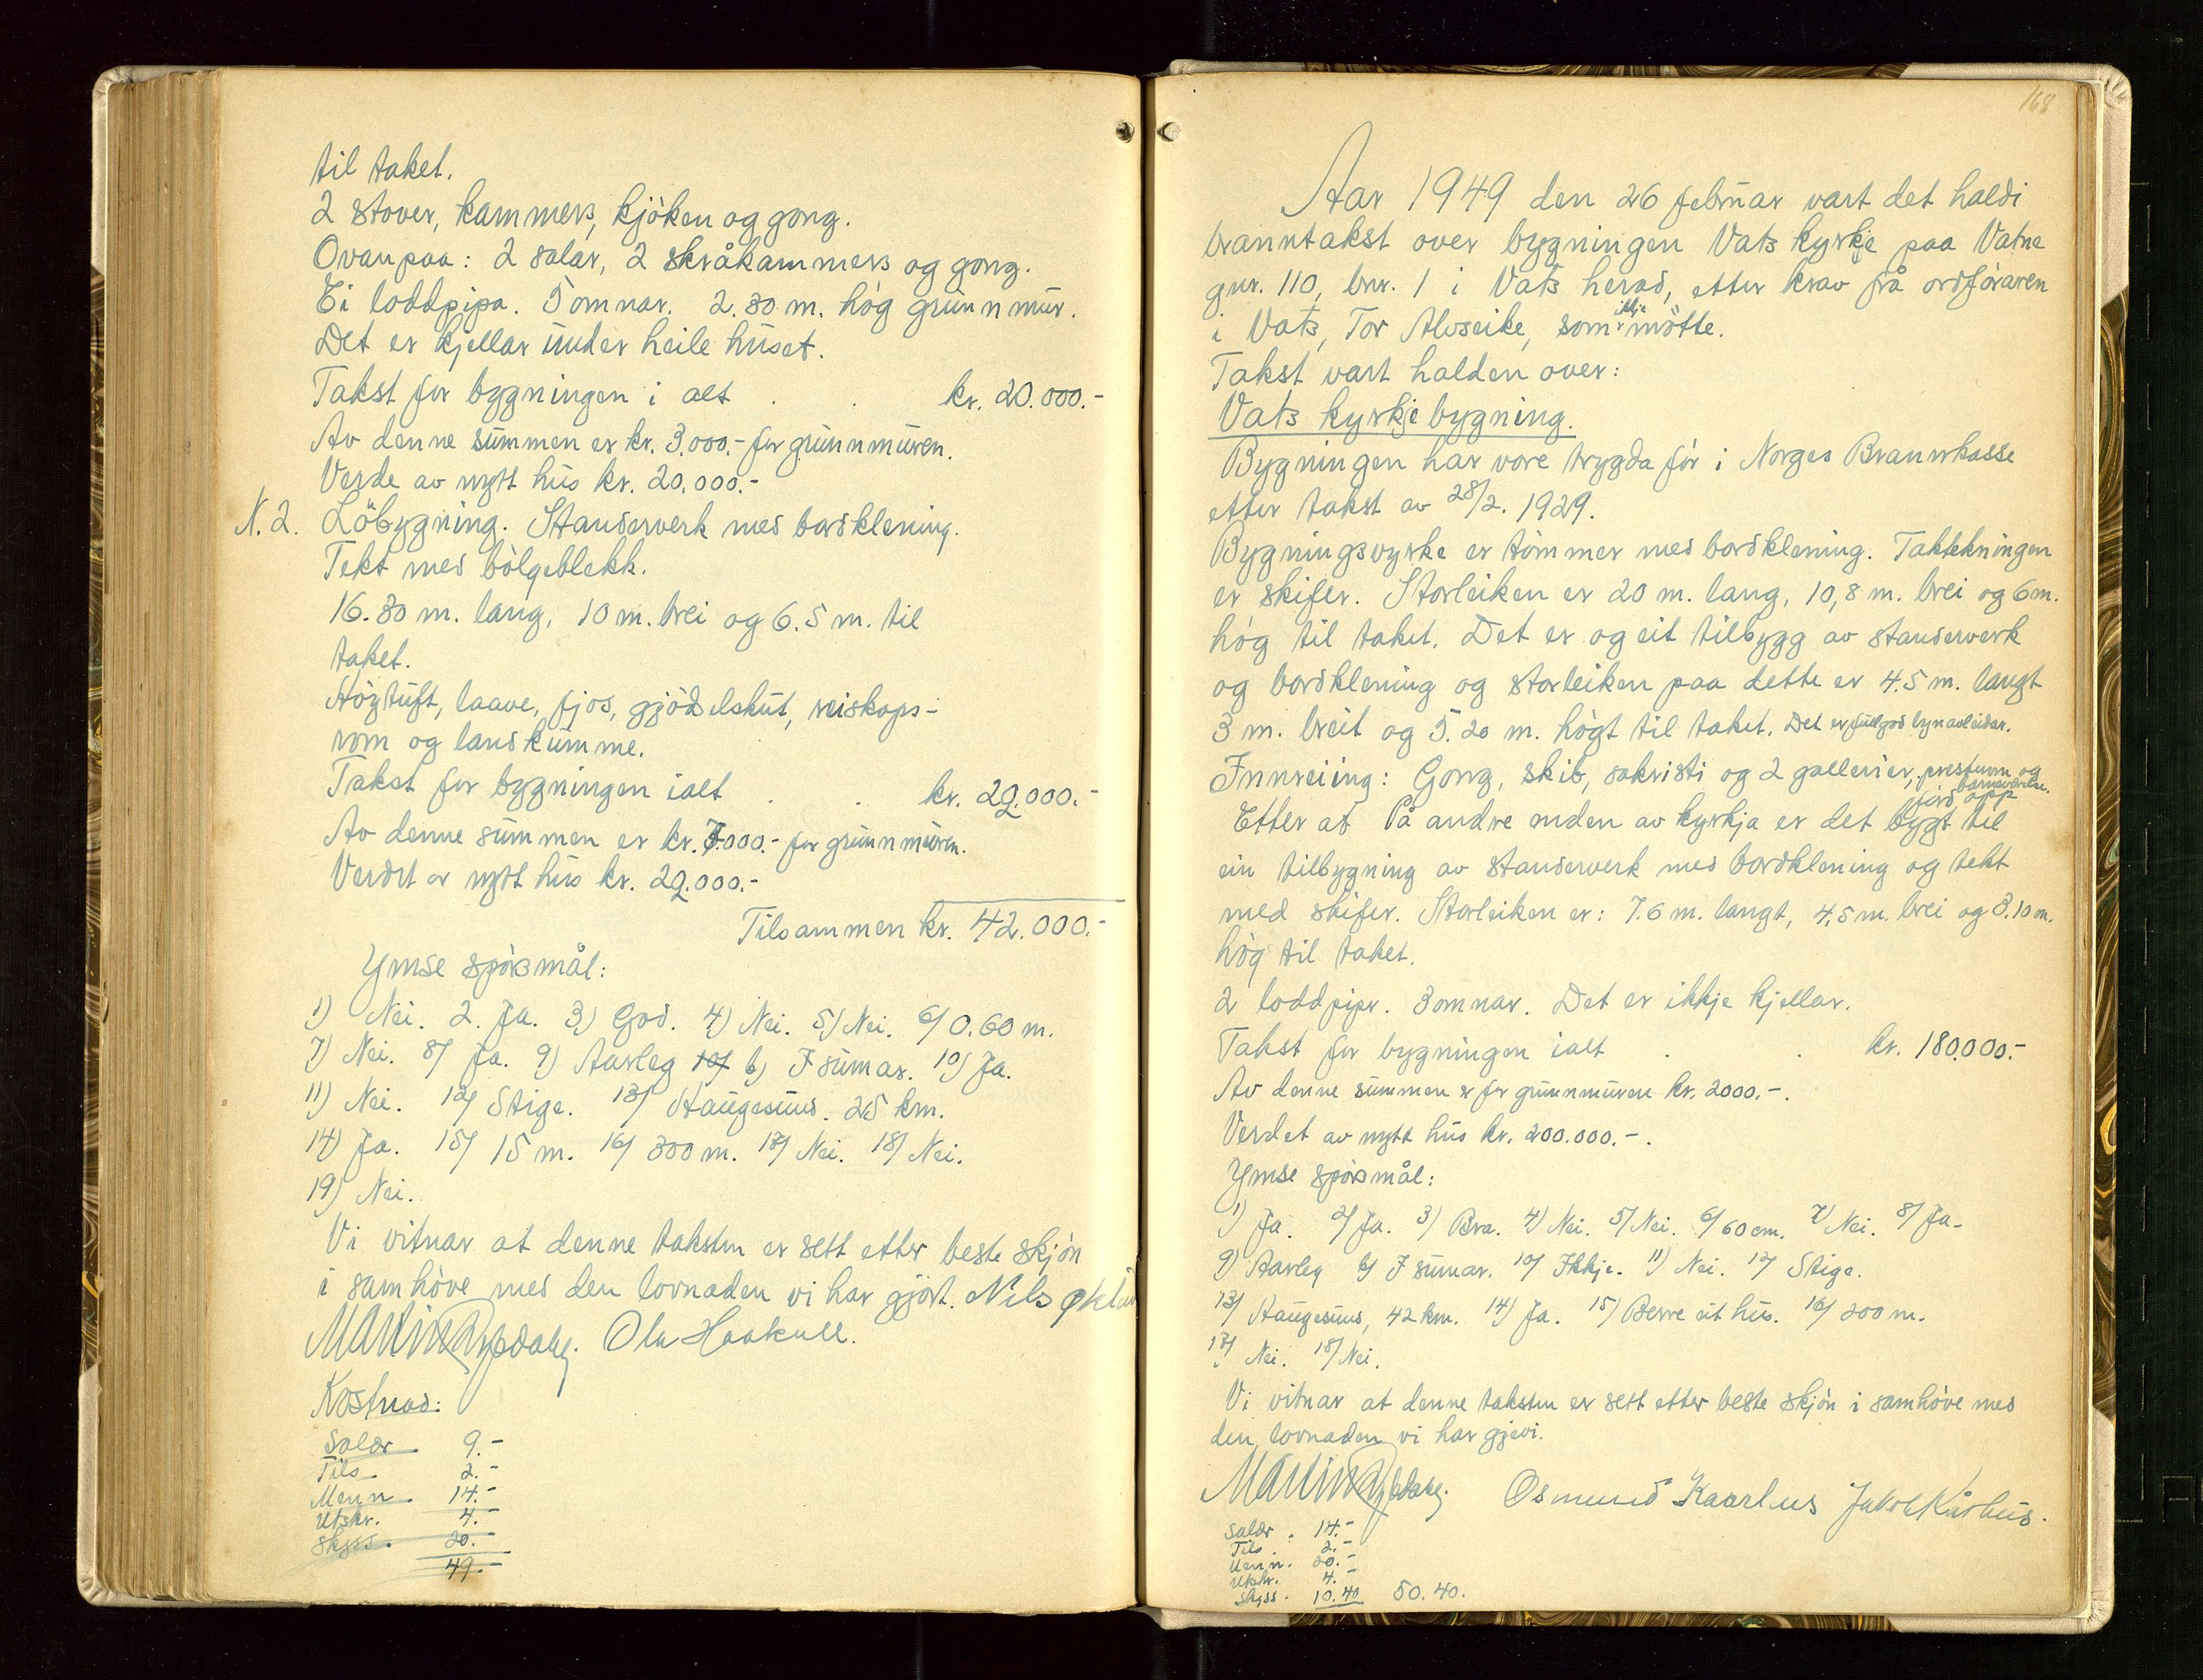 til taket.
2 stover, kammers, kjöken og gong.
Ovanpaa: 2 salar, 2 skråkammers og gong.
Ei loddpipa. 5 omnar. 2.30 m. hög grunnmur.
Det er kjellar under heile huset.
Takst for bygningen i alt . . kr. 20.000.-
Av denne summen er kr. 3.000.- for grunnmuren.
Verde av nytt hus kr. 20.000.-
N. 2. Löbygning. Standerverk med bordklening.
Tekt med bölgeblekk.
16.30 m. lang, 10 m. brei og 6.5 m. til
taket.
Högtuft, laave, fjos, gjödselskut, reiskaps-
rom og landkumme.
Takst for bygningen ialt . . kr. 22.000.-
Av denne summen er kr. 7.000.- for grunnmuren.
Verdet av nytt hus kr. 22.000.-
Tilsammen kr. 42.000.-
Ymse spörsmål:
1) Nei. 2. Ja. 3) God. 4) Nei. 5) Nei. 6) 0.60 m.
7) Nei. 8) Ja. 9) Aarleg 10) b) I sumar. 10) Ja.
11) Nei. 12) Stige. 13) Haugesund. 25 km.
14) Ja. 15) 15 m. 16) 300 m. 17) Nei. 18) Nei.
19) Nei.
Vi vitnar at denne taksten er sett etter beste skjön
i samhöve med den lovnaden vi har gjort. Nils
Martin Rypdal. Ola Haakull.
Kostnad:
Salær 9.-
Tils. 2.-
Menn. 14.-
Utskr. 4.-
Skyss. 20.
49.-
168
Aar 1949 den 26 februar vart det haldi
branntakst over bygningen Vats kyrkje paa Vatne
gnr. 110, bnr. 1 i Vats herad, etter krav frå ordföraren
i Vats, Tor Alvseike, som ikkje mötte.
Takst vart halden over:
Vats kyrkjebygning.
Bygningen har vore trygda för i Norges Brannkasse
etter takst av 28/2. 1929.
Bygningsvyrke er tömmer med bordklening. Taktekningen
er skifer. Storleiken er 20 m. lang, 10,8 m. brei og 6 m.
hög til taket. Det er og eit tilbygg av standerverk
og bordklening og storleiken paa dette er 4.5 m. langt
3 m. breit og 5.20 m. högt til taket. Det er fullgod lynavleidar.
Innreiing: Gong, skib, sakristi og 2 gallerier, prestrum og
barneværelse.
Etter at På andre enden av kyrkja er det bygt til
förd opp
ein tilbygning av standerverk med bordklening og tekt
med skifer. Storleiken er: 7.6 m. langt, 4.5 m. brei og 3.10 m.
hög til taket.
2 loddpipr. 3 omnar. Det er ikkje kjellar.
Takst for bygningen ialt . . kr. 180.000.-
Av denne summen er for grunnmuren kr. 2000.-.
Verdet av nytt hus kr. 200.000.-.
Ymse spörsmål:
1) Ja. 2) Ja. 3) Bra. 4) Nei. 5) Nei. 6) 60 cm. 7) Nei. 8) Ja-
9) Aarleg b) I sumar. 10) Ikkje. 11) Nei. 12) Stige.
13) Haugesund, 42 km. 14) Ja. 15) Berre eit hus. 16) 200 m.
17) Nei. 18) Nei.
Vi vitnar at denne taksten er sett etter beste skjön i samhöve med
den lovnaden vi har gjevi.
Martin Rypdal. Osmund Kaarhus Jakob Kårhus.
Salær . 14.-
Tils . 2.-
Menn. 20.-
Utskr. 4.-
Skyss. 10.40 50.40.